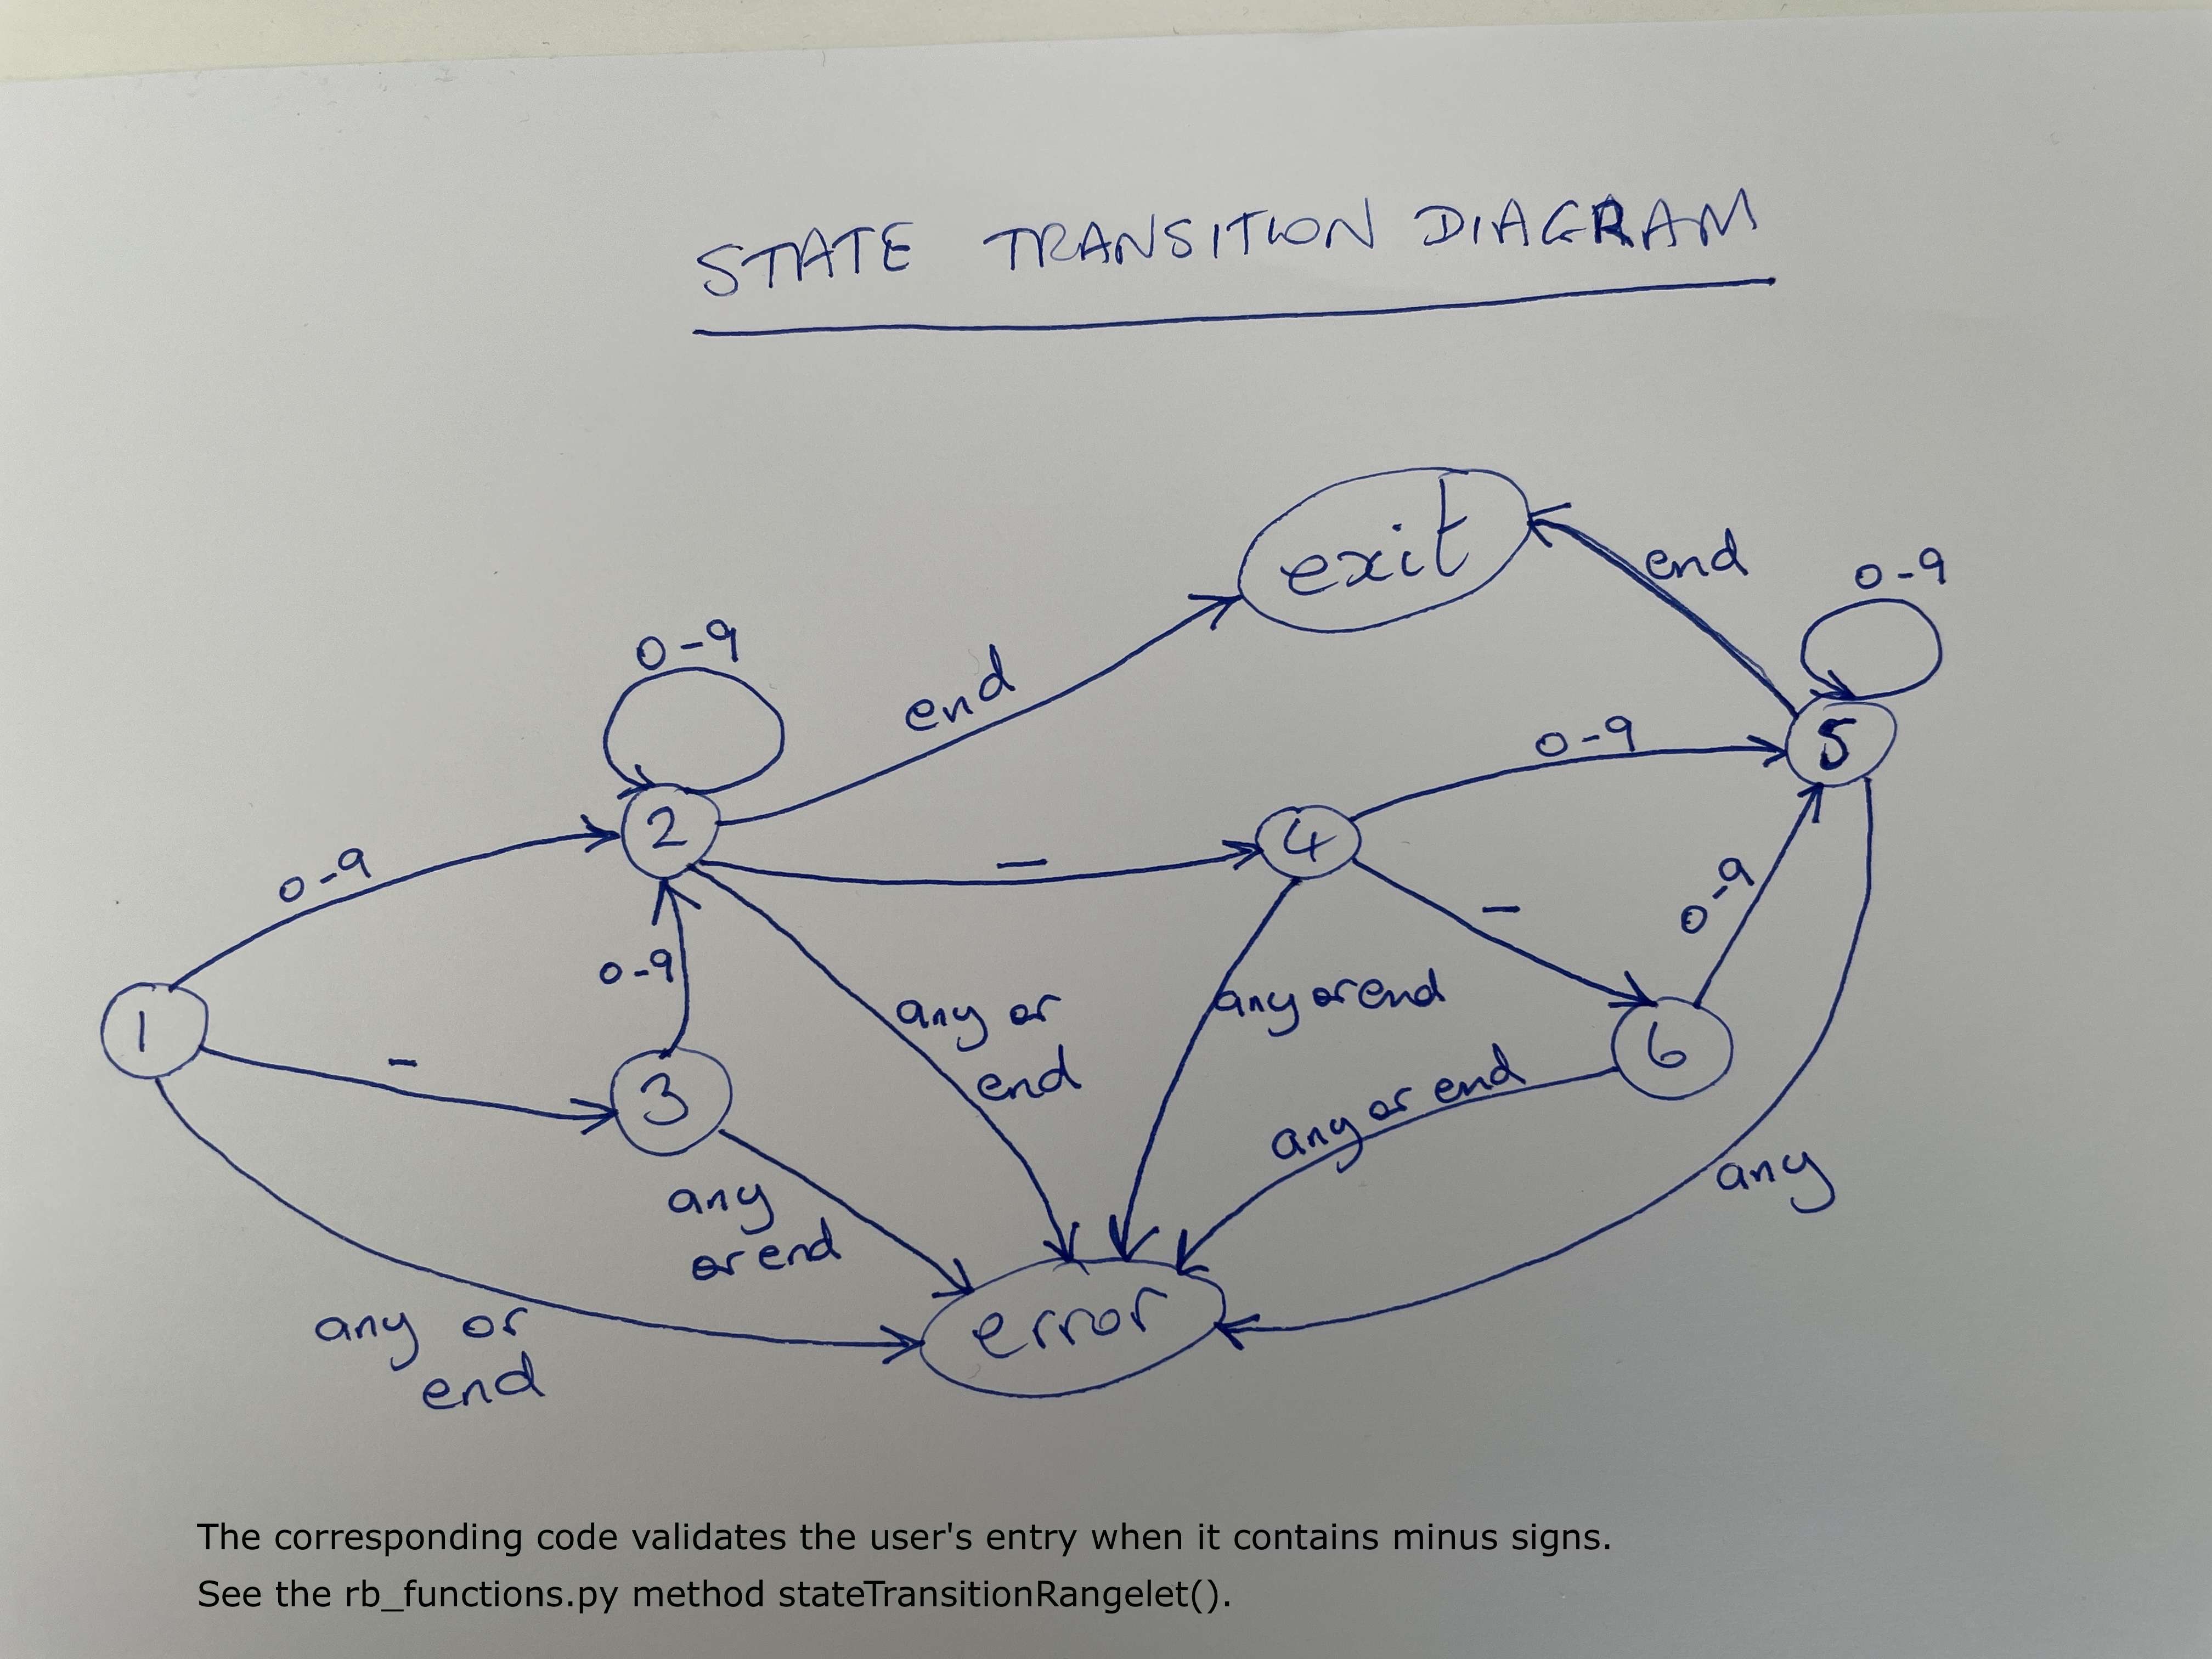 STATE TRANSITION DIAGRAM
exit
end
0-9
0-9
end
0-9
5
2
4
0-9
-
0-9
-
0-9
1
-
3
any or
end
any or end
6
any or end
any
any
or end
error
any or
end
The corresponding code validates the user's entry when it contains minus signs.
See the rb_functions.py method stateTransitionRangelet().